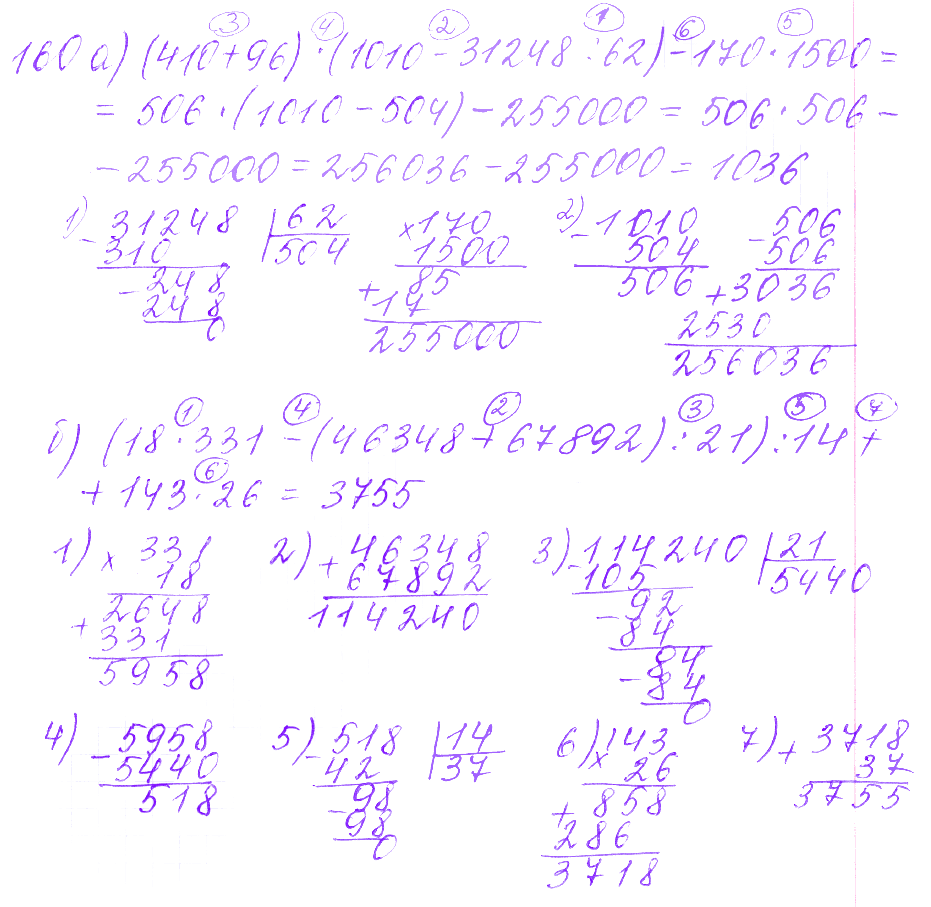 ③ ④ ② ① ⑥ ⑤
160 а) (410+96)·(1010-31248:62)-170·1500=
= 506·(1010-504)-255000 = 506·506-
-255000=256036-255000=1036
1) - 31248 | 62 × 170 2) - 1010 - 506
310 504 1500 504 506
- 248 + 85 506 + 3036
248 17 2530
0 255000 256036
① ④ ② ③ ⑤ ⑦
б) (18·331-(46348+67892):21):14+
⑥
+143·26 = 3755
1) × 331 2) + 46348 3) - 114240 | 21
18 67892 105 5440
2648 114240 - 92
+ 331 84
5958 - 84
84
0
4) - 5958 5) - 518 | 14 6) × 143 7) + 3718
5440 42 37 26 37
518 - 98 + 858 3755
98 286
0 3718